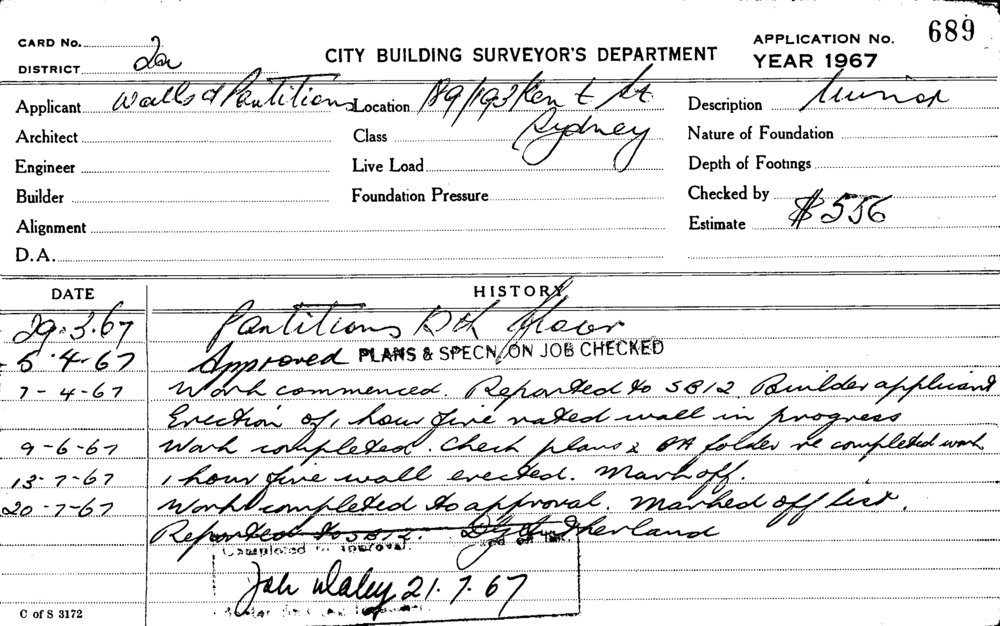 CARD No. 2a
DISTRICT
CITY BUILDING SURVEYOR'S DEPARTMENT
APPLICATION No. 689
YEAR 1967
Applicant Walls & Partitions
Location 189/193 Kent St
Sydney
Description Minor
Architect
Class
Nature of Foundation
Engineer
Live Load
Depth of Footings
Builder
Foundation Pressure
Checked by
Alignment
Estimate $556
D.A.
DATE HISTORY
29.3.67 Partitions Floor
5.4.67 Approved PLANS & SPECN/ON JOB CHECKED
7-4-67 Work commenced. Reported to SB12. Builder applicant
Erection of 1 hour fire rated wall in progress
9-6-67 Work completed. Check plans & BA folder re completed work
13-7-67 1 hour fire wall erected. Mark off.
20-7-67 Work completed to approval. Marked off list.
Reported to SB12. Sutherland
Completed to approval.
21.7.67
C of S 3172